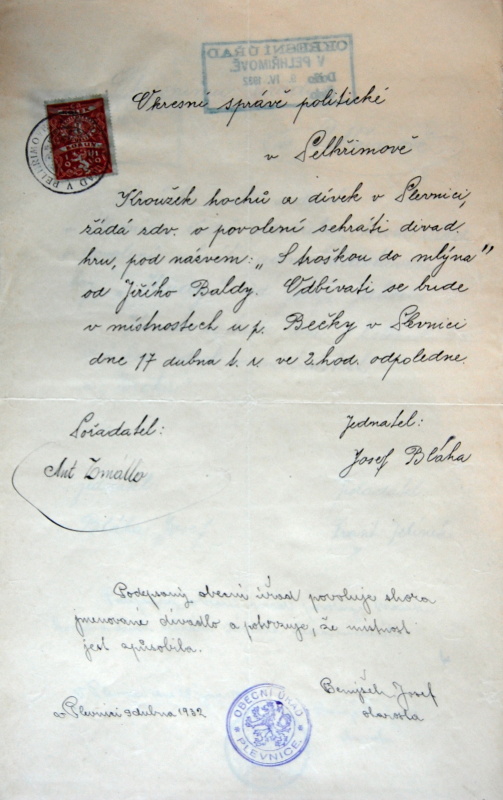 OKRESNÍ ÚŘAD
V PELHŘIMOVĚ
Došlo 9. IV. 1932
Okresní správě politické
v Pelhřimově
Kroužek hochů a dívek v Plevnici,
řádá rdv. o povolení sehráti divad.
hru, pod názvem: „S troškou do mlýna"
od Jiřího Baldy. Odbívati se bude
v místnostech u p. Bečky v Plevnici
dne 17 dubna t. r. ve 2. hod. odpoledne.
Pořadatel:
Jednatel:
Ant Zmátlo
Josef Bláha
Podepsaný obecní úřad povoluje shora
jmenované divadlo a potvrzuje, že místnost
jest způsobilá.
V Plevnici 9 dubna 1932
OBECNÍ ÚŘAD
PLEVNICE
Josef
starosta